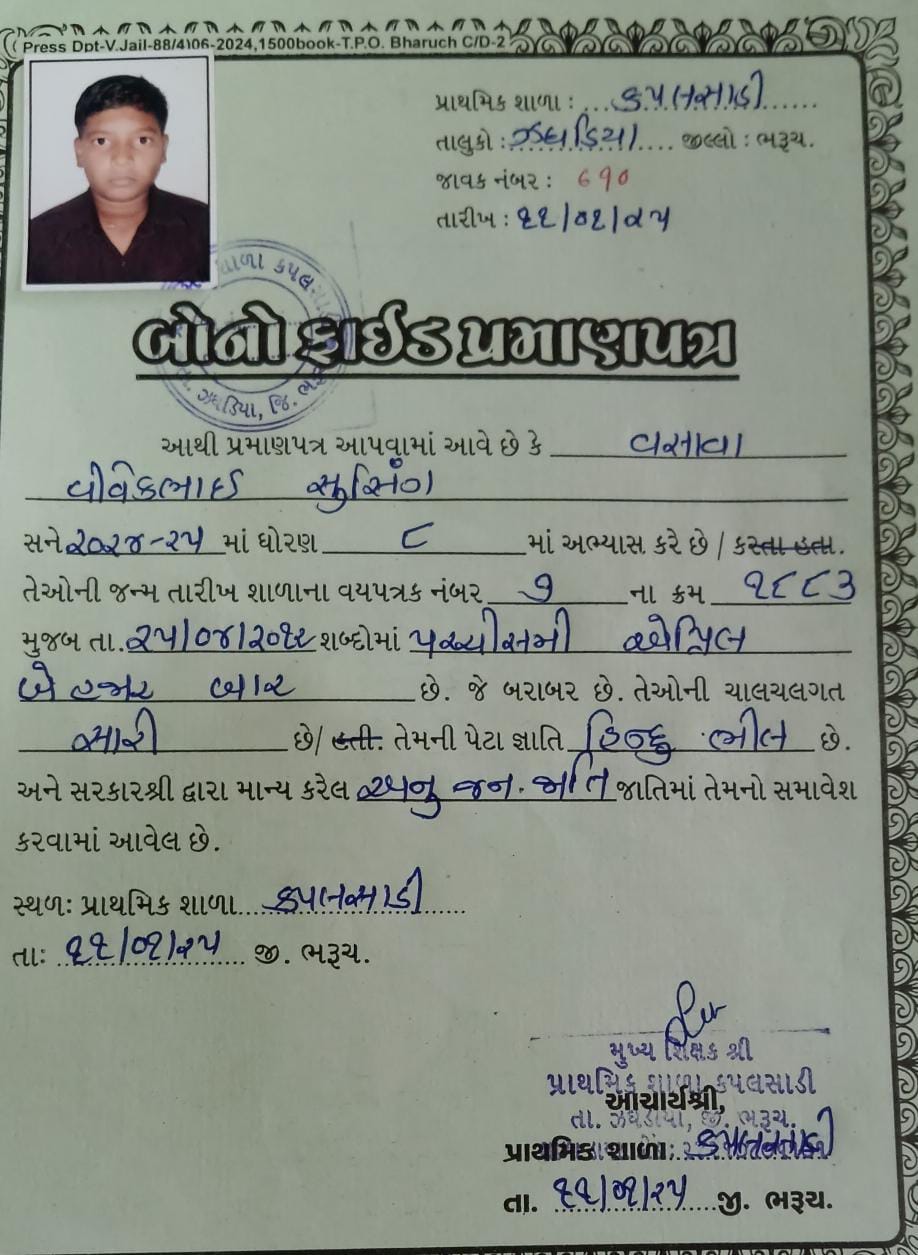 Press Dpt-V.Jail-88/4)06-2024,1500book-T.P.O. Bharuch C/D-2
પ્રાથમિક શાળા : કપલસાડી
તાલુકો : ઝઘડિયા જીલ્લો : ભરૂચ.
જાવક નંબર : ૬૧૦
તારીખ : ૨૨/૦૧/૨૫
શાળા કપલસાડી
તા. ઝઘડિયા, જિ. ભરૂચ
બોનોફાઈડ પ્રમાણપત્ર
આથી પ્રમાણપત્ર આપવામાં આવે છે કે વસાવા
વીવેકભાઈ સુસિંગ
સને ૨૦૨૪-૨૫ માં ધોરણ ૮ માં અભ્યાસ કરે છે / કરતા હતા.
તેઓની જન્મ તારીખ શાળાના વયપત્રક નંબર ૭ ના ક્રમ ૧૮૮૩
મુજબ તા. ૨૫/૦૪/૨૦૧૨ શબ્દોમાં પચ્ચીસમી એપ્રિલ
બે હજાર બાર છે. જે બરાબર છે. તેઓની ચાલચલગત
સારી છે/ હતી. તેમની પેટા જ્ઞાતિ હિન્દુ ભીલ છે.
અને સરકારશ્રી દ્વારા માન્ય કરેલ અનુ જન. જાતિ જાતિમાં તેમનો સમાવેશ
કરવામાં આવેલ છે.
સ્થળઃ પ્રાથમિક શાળા કપલસાડી
તાઃ ૨૨/૦૧/૨૫ જી. ભરૂચ.
મુખ્ય શિક્ષક શ્રી
પ્રાથમિક શાળા કપલસાડી
આચાર્યશ્રી,
તા. ઝઘડીયા, જી. ભરૂચ.
પ્રાથમિક શાળા: કપલસાડી
તા. ૨૨/૦૧/૨૫ જી. ભરૂચ.